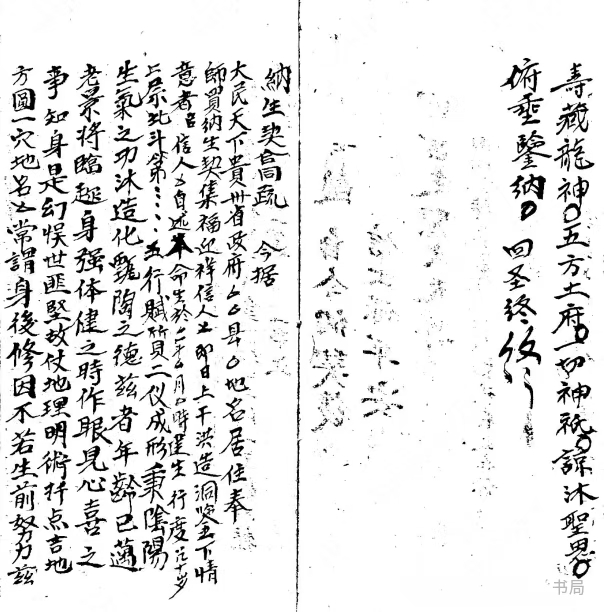 壽藏龍神〇五方土府〇一切神祇〇諒沐聖恩〇
俯垂鑒納〇 四圣終
納生契啇疏 今据
大民天下貴州省政府厶厶县〇地名居住奉
師買納生契集福迎祥信人厶即日上干洪造洞鉴下情
意者信人厶自述本命生於厶年厶月〇時建生行度
上屬北斗第⋯⋯五行賦質二仪成形秉陰陽
生氣之功沐造化甄陶之德兹者年齡已邁
老景将臨趂身强体健之時作眼見心喜之
事知身是幻悮世匪堅故仗地理明術扦点吉地
方圓一穴地名厶常謂身後修因不若生前努力兹
书局